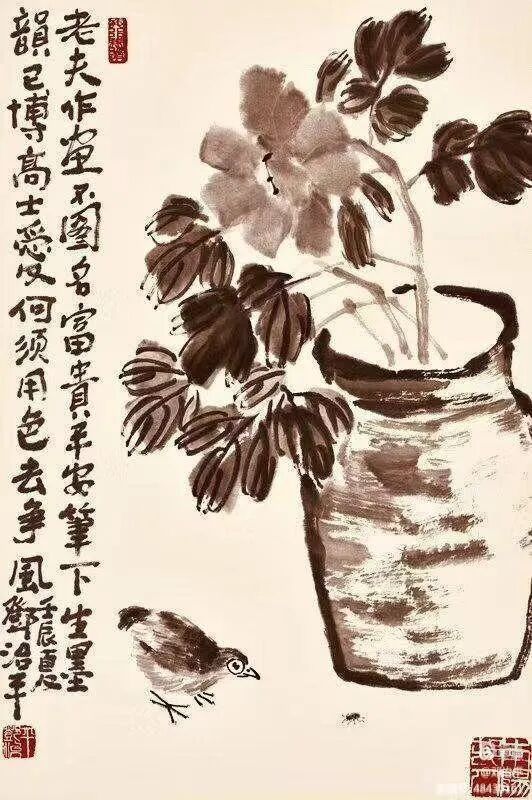 老夫作画不图名富貴平安筆下生墨
韻已博高士愛何須用色去争風
壬辰夏
鄧治平